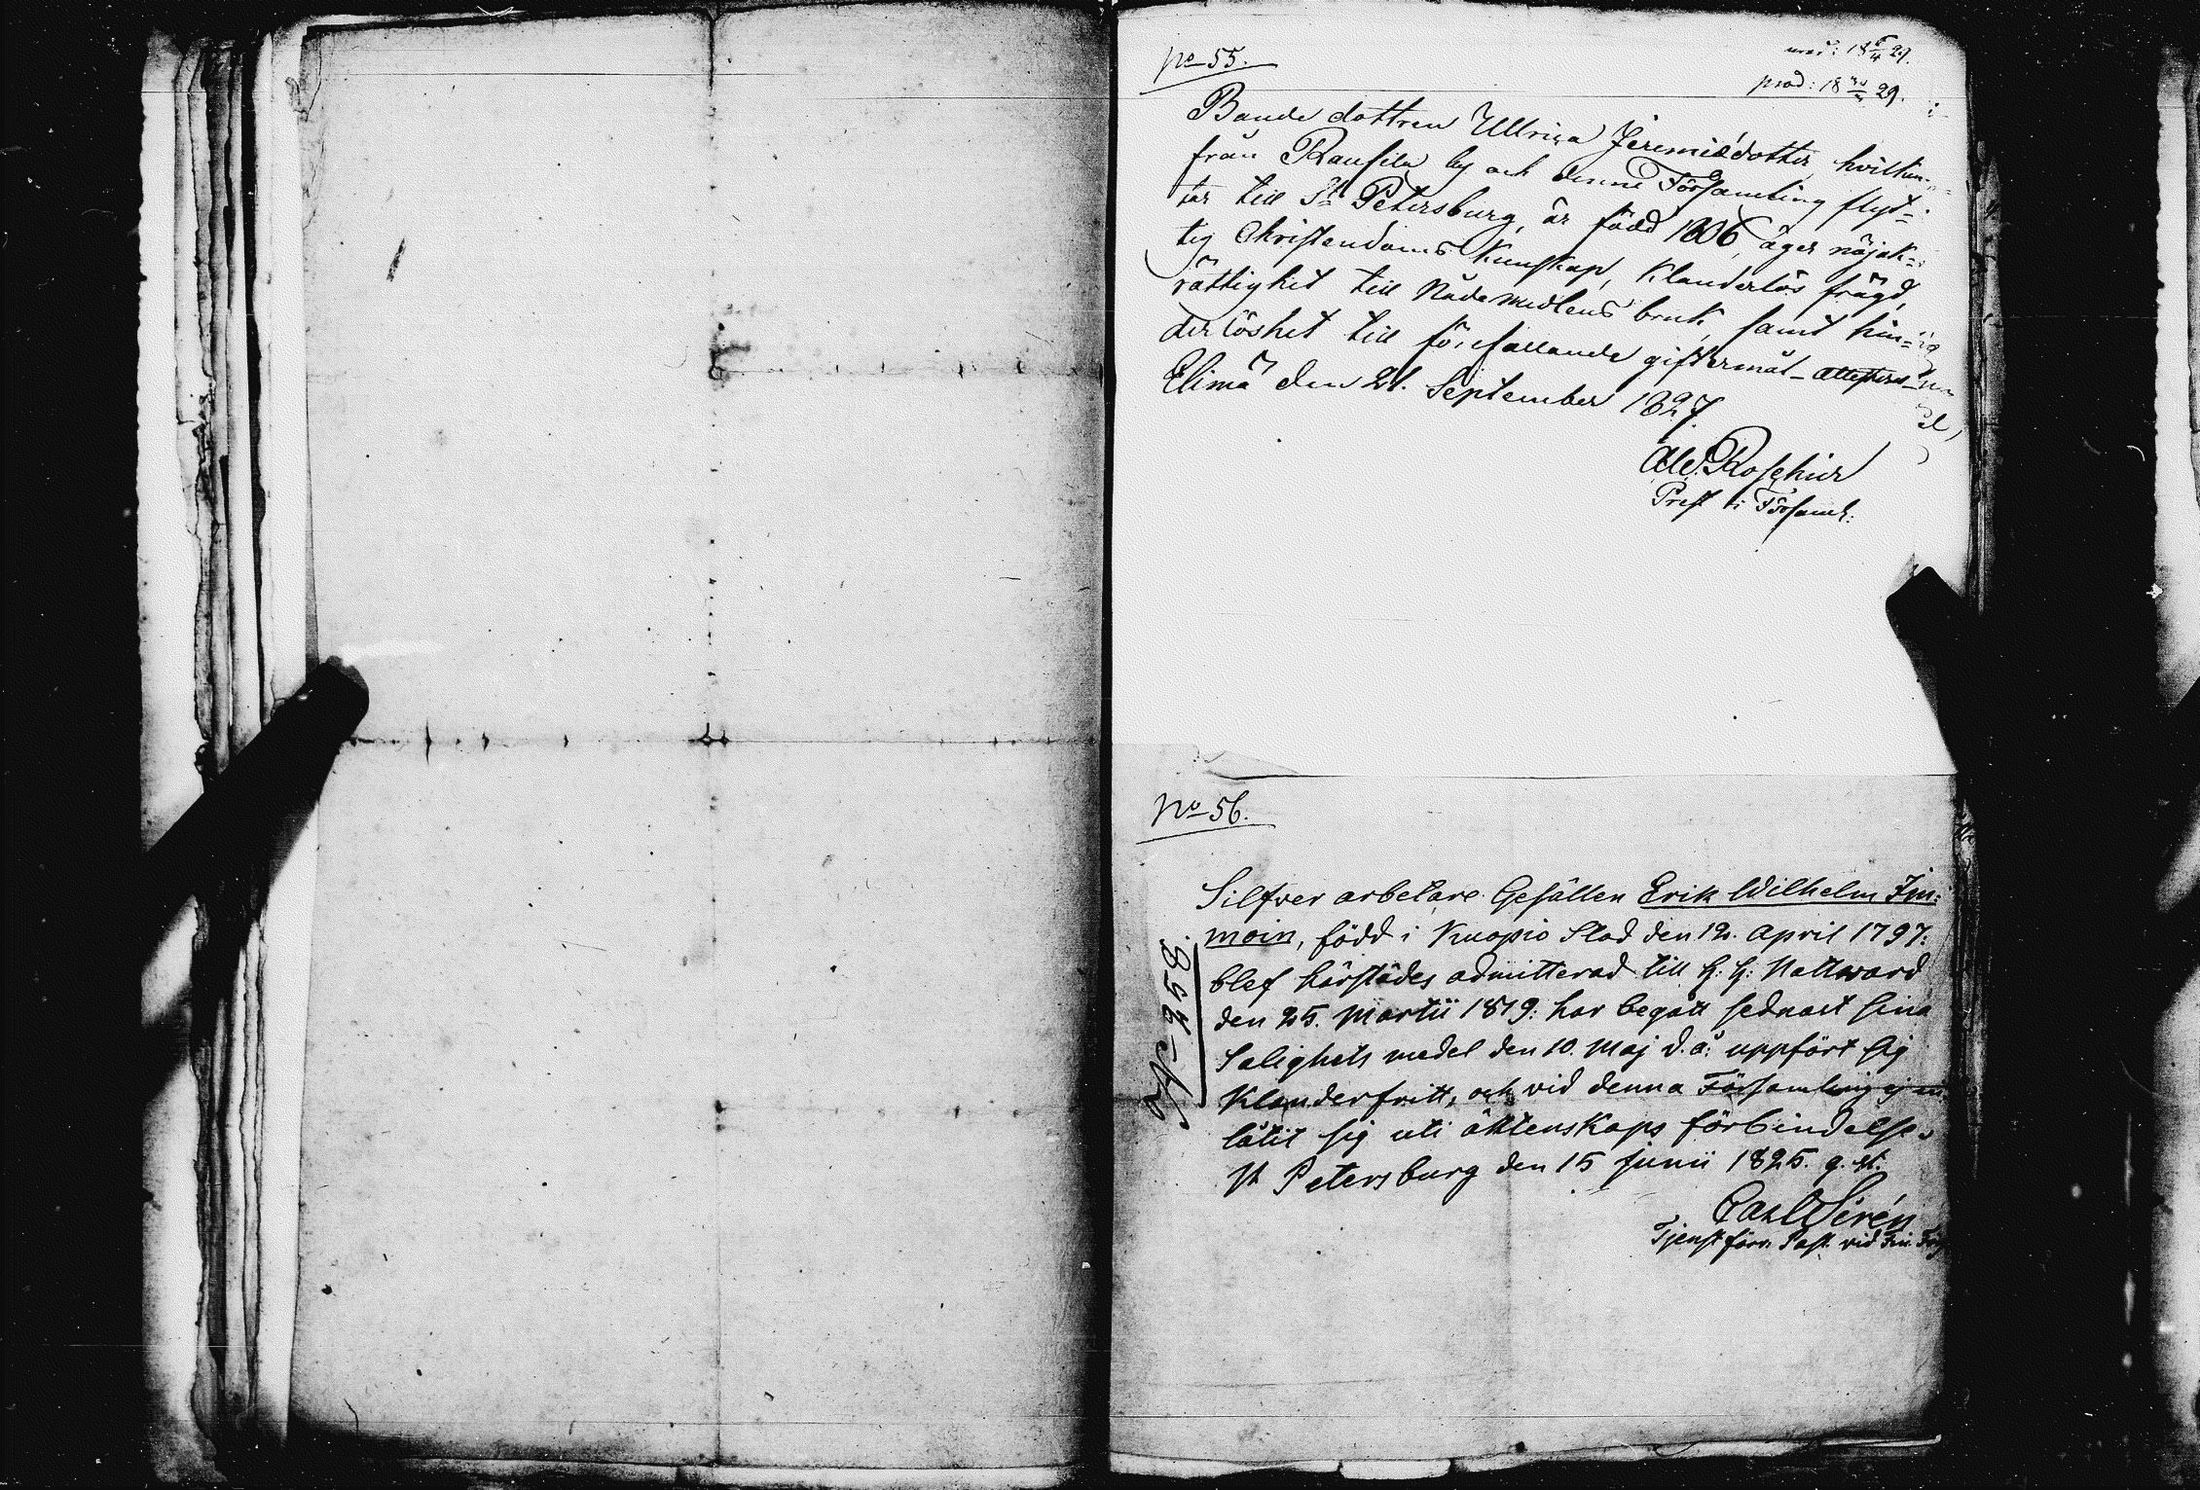 No 55.
prod: 18 29.
Bonde dottren Ullrica Jeremiædotter, hvilken
från Raussila by och denne Församling flyt-
tar till St Petersburg, är född 1806, äger nöjak-
tig Christendoms kunskap, klanderlös frägd,
rättighet till Nådemedlens bruk, samt hin-
derlöshet till förefallande giftermål attesteras
Elimä den 21. September 1827
Prest i Församl:
No 56.
No 258.
Silfver arbetare Gesällen Erik Wilhelm Im-
moin, född i Kuopio Stad den 12. April 1797:
blef härstädes admitterad till H: H: Nattward
den 25. Martii 1819: har begått sednast sina
Salighets medel den 10. Maj d. å: uppfört sig
klanderfritt, och vid denna Församling ej in
låtit sig uti äktenskaps förbindelse.
St Petersburg den 15 Junii 1825. g. st.
Carl Sirén
Tjenstförr. Past. vid Fin. För